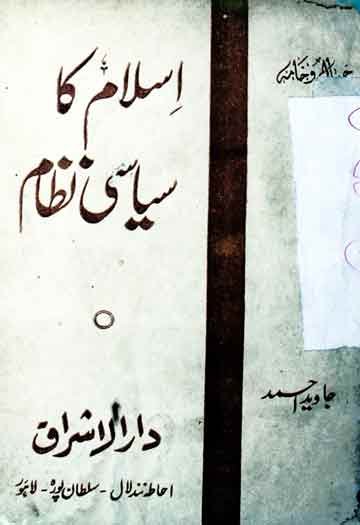 اسلام کا
سیاسی نظام
جاوید احمد
دارالاشراق
احاطہ نندلال - سلطان پورہ - لاہور